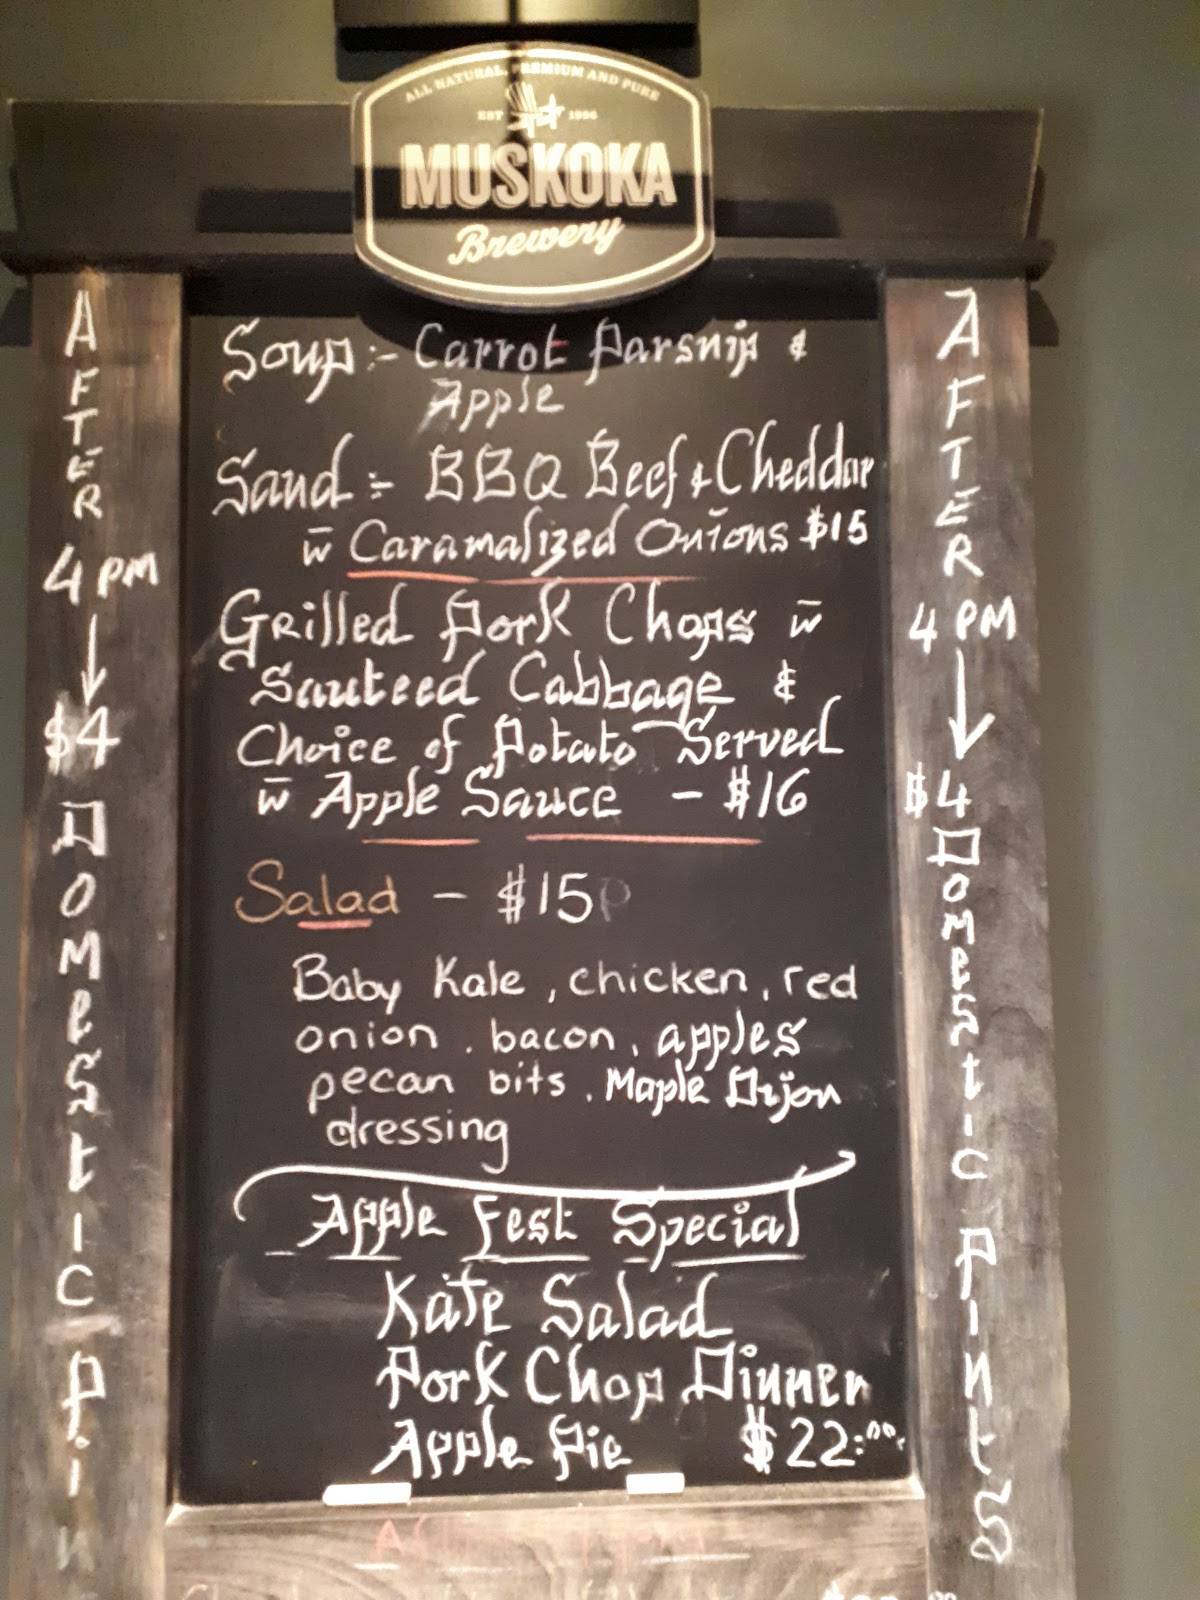 ALL NATURAL, PREMIUM AND PURE
EST 1996
MUSKOKA
Brewery
AFTER
4 PM
$4
Domestic Pin
Soup :- Carrot Parsnip &
Apple
Sand :- BBQ Beef & Cheddar
w̄ Caramalized Onions $15
Grilled Pork Chops w̄
Sauteed Cabbage &
Choice of Potato Served
w̄ Apple Sauce - $16
Salad - $15
Baby Kale, chicken, red
onion, bacon, apples
pecan bits, Maple Dijon
dressing
Apple Fest Special
Kale Salad
Pork Chop Dinner
Apple Pie $22.00
AFTER
4 PM
$4
Domestic Pints